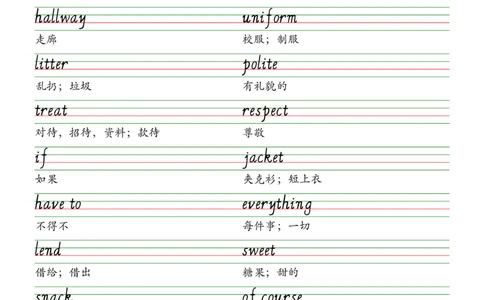 hallway uniform
走廊 校服；制服
litter polite
乱扔；垃圾 有礼貌的
treat respect
对待，招待，资料；款待 尊敬
if jacket
如果 夹克衫；短上衣
have to everything
不得不 每件事；一切
lend sweet
借给；借出 糖果；甜的
snack of course